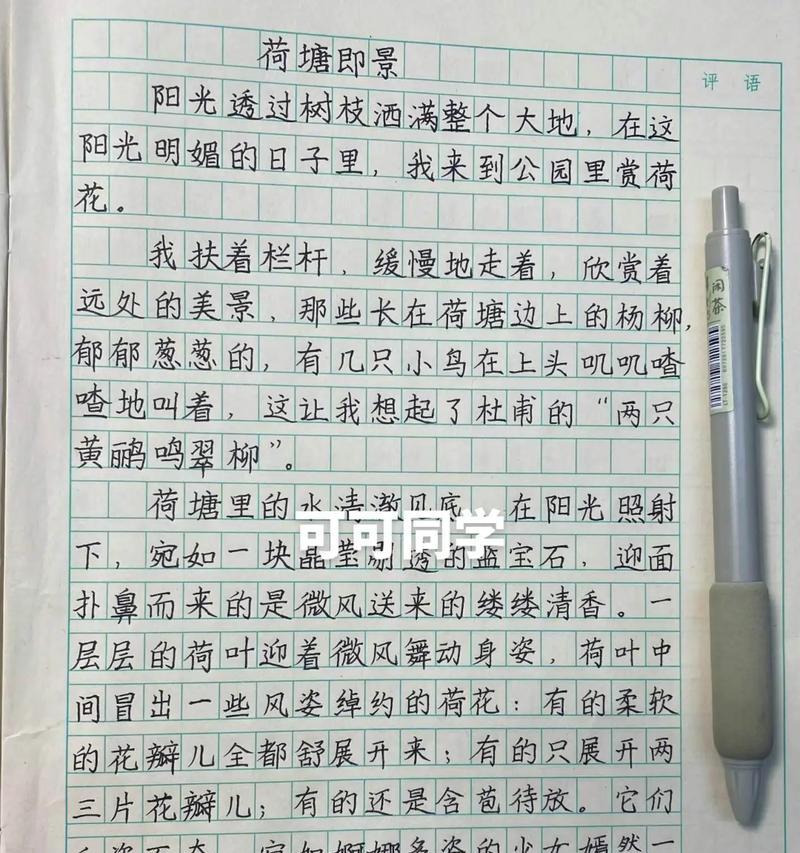 荷塘即景
评 语
阳光透过树枝洒满整个大地，在这
阳光明媚的日子里，我来到公园里赏荷
花。
我扶着栏杆，缓慢地走着，欣赏着
远处的美景，那些长在荷塘边上的杨柳，
郁郁葱葱的，有几只小鸟在上头叽叽喳
喳地叫着，这让我想起了杜甫的“两只
黄鹂鸣翠柳”。
荷塘里的水清澈见底 在阳光照射
下，宛如一块晶莹剔透的蓝宝石，迎面
扑鼻而来的是微风送来的缕缕清香。一
层层的荷叶迎着微风舞动身姿，荷叶中
间冒出一些风姿绰约的荷花：有的柔软
的花瓣儿全都舒展开来；有的只展开两
三片花瓣儿；有的还是含苞待放。它们
宛如婀娜多姿的少女嫣然一
可可同学
闲茶